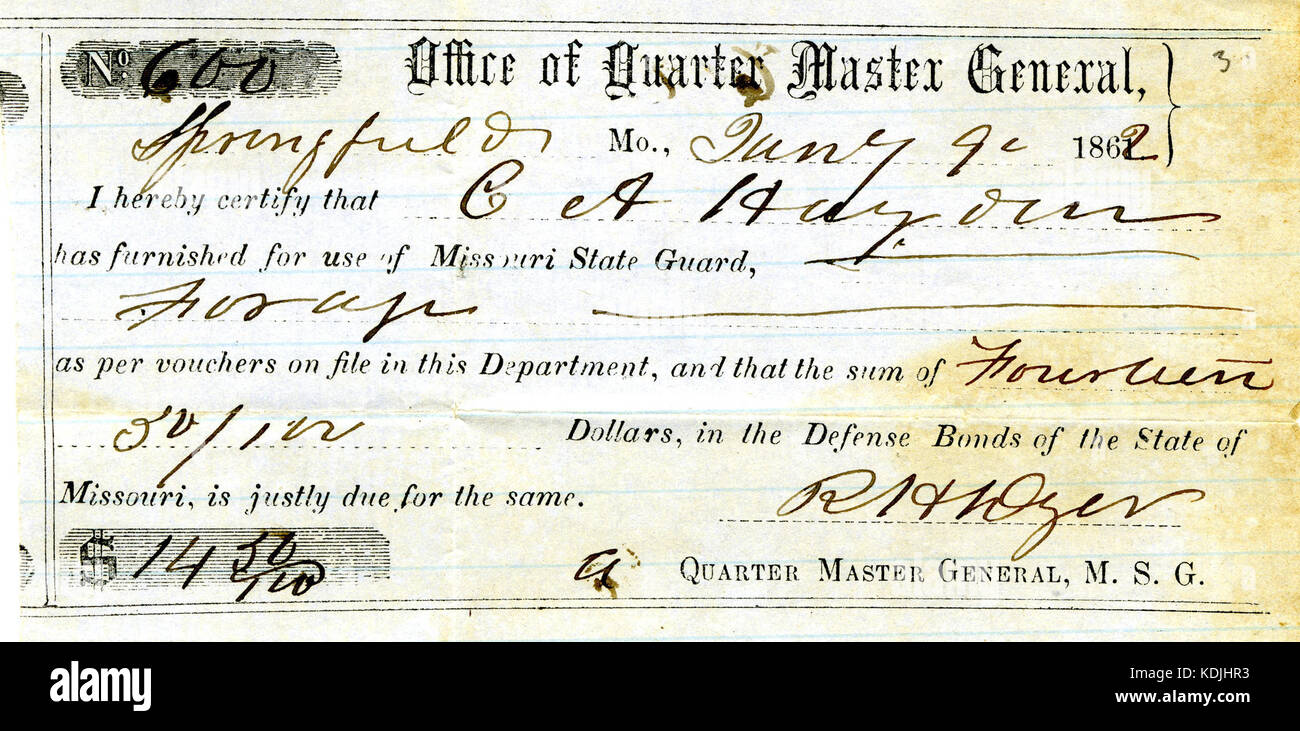 No. 600 Office of Quarter Master General, 3
Springfield Mo., Jany 9 1862
I hereby certify that C A Hayden
has furnished for use of Missouri State Guard,
Forage
as per vouchers on file in this Department, and that the sum of Fourteen
50/100 Dollars, in the Defense Bonds of the State of
Missouri, is justly due for the same. R H Dyer
$ 14 50/100 a QUARTER MASTER GENERAL, M. S. G.
alamy
Image ID: KDJHR3
www.alamy.com